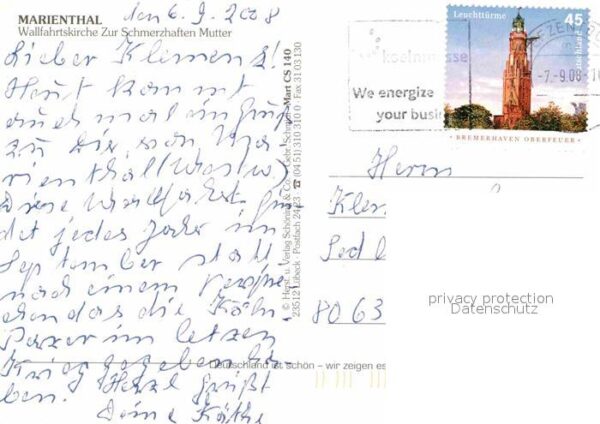 MARIENTHAL
Wallfahrtskirche Zur Schmerzhaften Mutter
den 6.9.2008
Lieber Klemens!
Heut kommt
auch mal ein Gruß
zu Dir von Ma-
rienthal
Diese Wallfahrt fin-
det jedes Jahr im
September statt
nach einem Verspre-
chen das die Köln-
Porzer im letzen
Krieg gegeben ha-
ben. Herzl grüßt
Deine Käthe
© Herst. u. Verlag Schöning & Co + Gebr. Schmidt Mart CS 140
23512 Lübeck · Postfach 24 23 ☎ (04 51) 310 310 0 · Fax 31 03 130
Deutschland ist schön – wir zeigen es
koelnmesse
We energize
your busi
-7.-9.08-
Leuchttürme 45
Deutschland
BREMERHAVEN OBERFEUER
Herrn
Kle
8063
privacy protection
Datenschutz